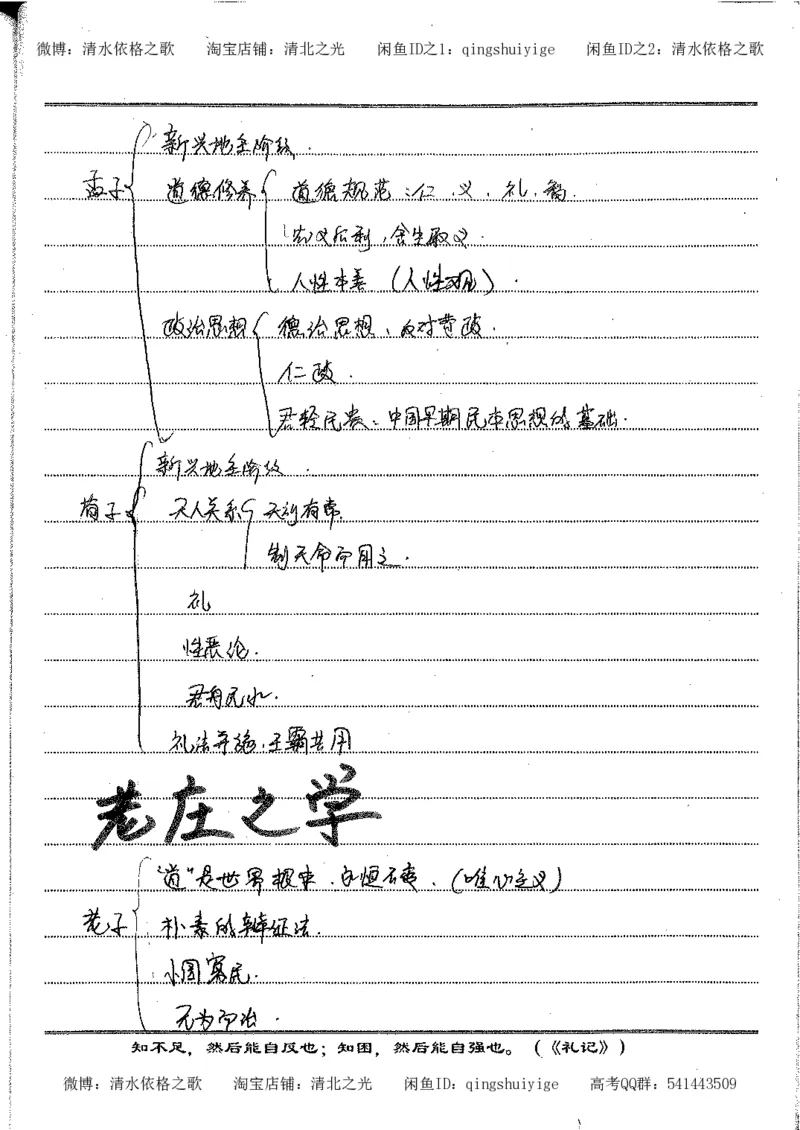 微博：清水依格之歌 淘宝店铺：清北之光 闲鱼ID之1：qingshuiyige 闲鱼ID之2：清水依格之歌
新兴地主阶级.
孟子 道德修养 道德规范：仁、义、礼、智.
先义后利，舍生取义.
人性本善（人性观）.
政治思想 德治思想、反对苛政.
仁政.
君轻民贵：中国早期民本思想的基础.
新兴地主阶级.
荀子 天人关系 天行有常.
制天命而用之.
礼
性恶论.
君舟民水.
礼法并施，王霸共用
老庄之学
"道"是世界根本、永恒不变、（唯心主义）
老子 朴素的辩证法.
小国寡民.
无为而治.
知不足，然后能自反也；知困，然后能自强也。（《礼记》）
微博：清水依格之歌 淘宝店铺：清北之光 闲鱼ID：qingshuiyige 高考QQ群：541443509